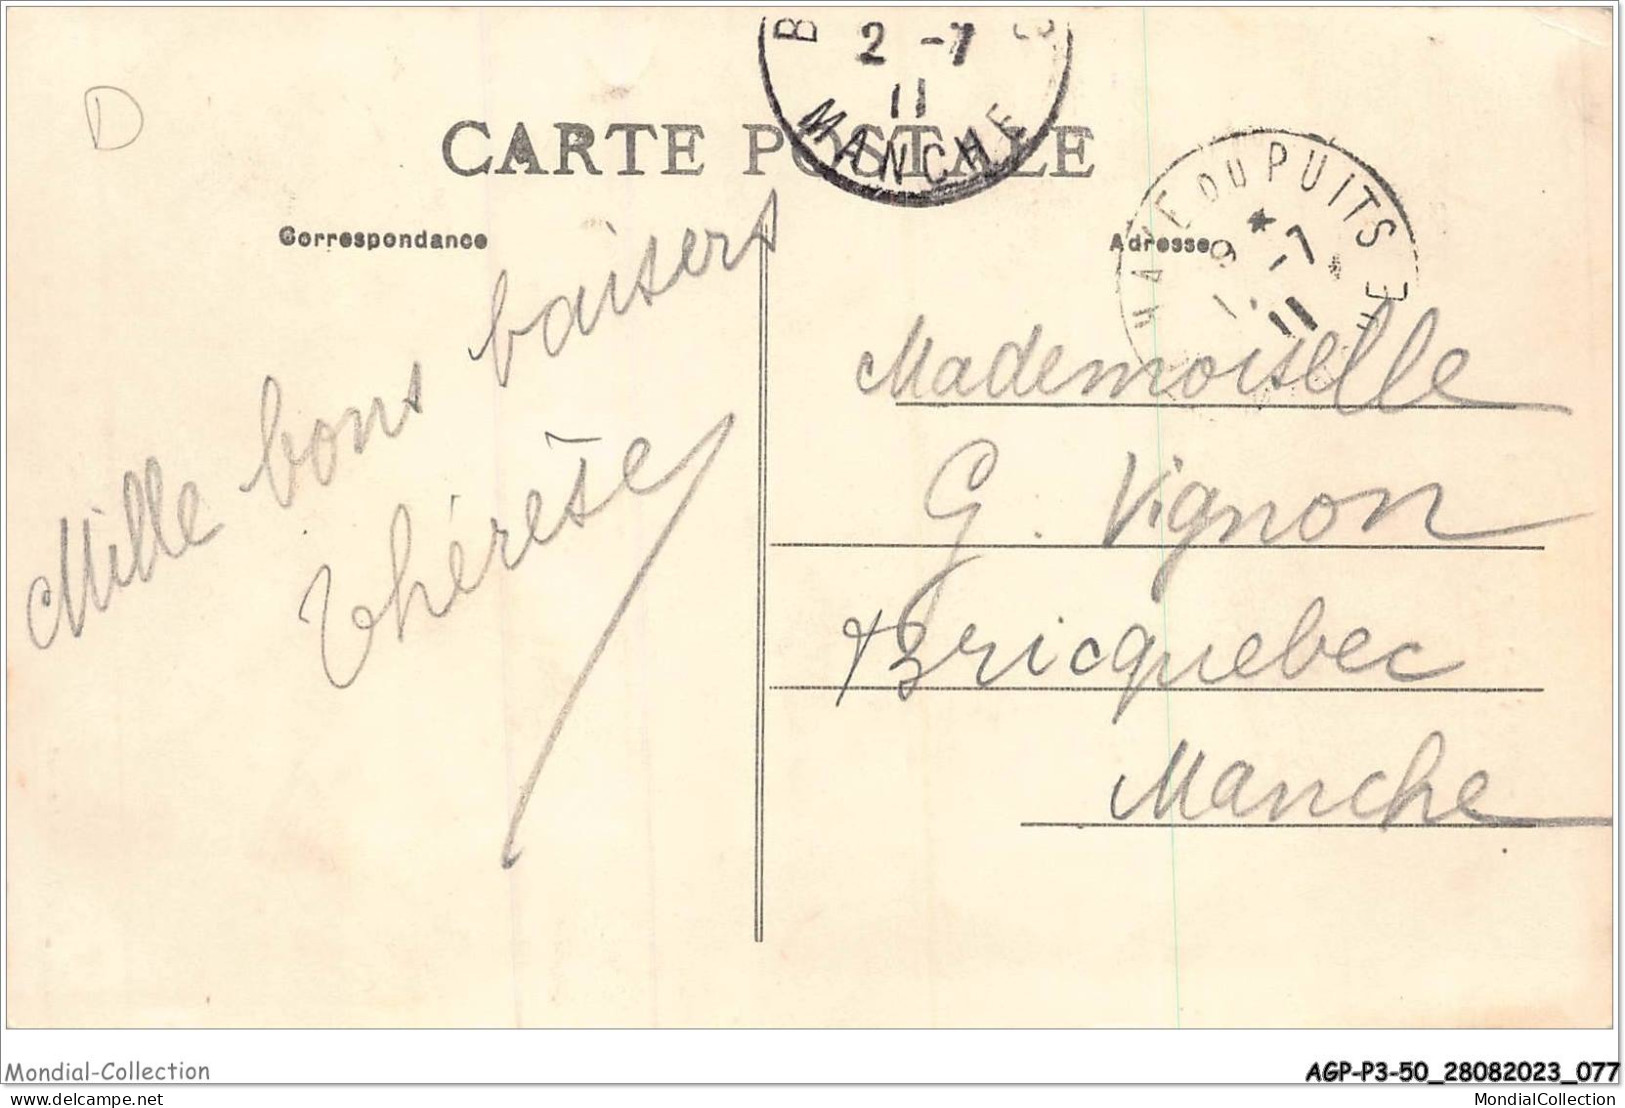 D
B 2 -7 11 MANCHE
CARTE POSTALE
HAYE DU PUITS
9 * -7 11
Correspondance
Adresse
Mille bons baisers
Thérèse
Mademoiselle
G. Vignon
Bricquebec
Manche
Mondial-Collection
AGP-P3-50_28082023_077
delcampe.net
MondialCollection